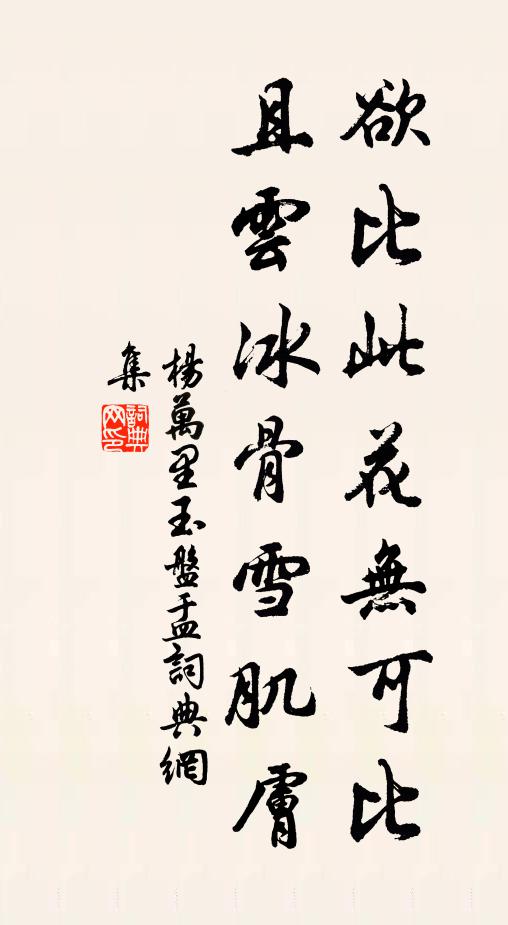 欲比此花無可比
且雲冰骨雪肌膚
楊萬里玉盤盂詞典網
集
詞典
网印